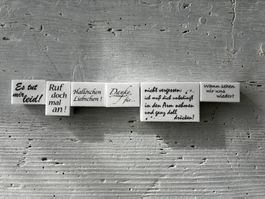 Es tut
mir
leid!
Ruf
doch
mal
an!
Hallöschen
Liebschen!
Danke
für...
nicht vergessen:
ich muß dich unbedingt
in den Arm nehmen
und ganz doll
drücken!
Wann sehen
wir uns
wieder?